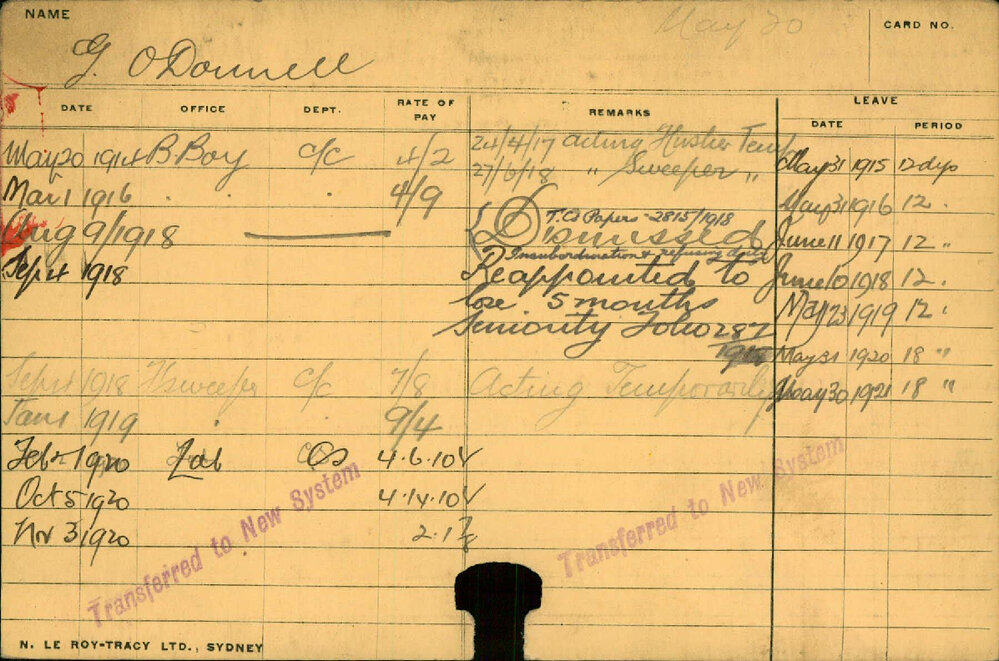 NAME
May 20
CARD NO.
G. O'Donnell
DATE OFFICE DEPT. RATE OF PAY REMARKS LEAVE
DATE PERIOD
May 20 1914 B Boy C/C 4/2 24/4/17 Acting Huster Temp May 31 1915 12 dys
27/6/18 " Sweeper "
Mar 1 1916 . . 4/9 May 31 1916 12 .
T.O Papers - 2815/1918
Aug 9/1918 Dismissed June 11 1917 12 "
Insubordination & refusing duty
Sept 4 1918 Reappointed to June 10 1918 12 .
lose 5 months May 23 1919 12 .
Seniority Folio 287
1918 May 31 1920 18 "
Sept 4 1918 Sweeper C/C 7/8 Acting Temporarily May 30 1921 18 "
Jan 1 1919 9/4
Feb 1920 Lab 4.6.10
Oct 5 1920 4.14.10
Nr 3 1920 2.1
Transferred to New System
Transferred to New System
N. LE ROY-TRACY LTD., SYDNEY